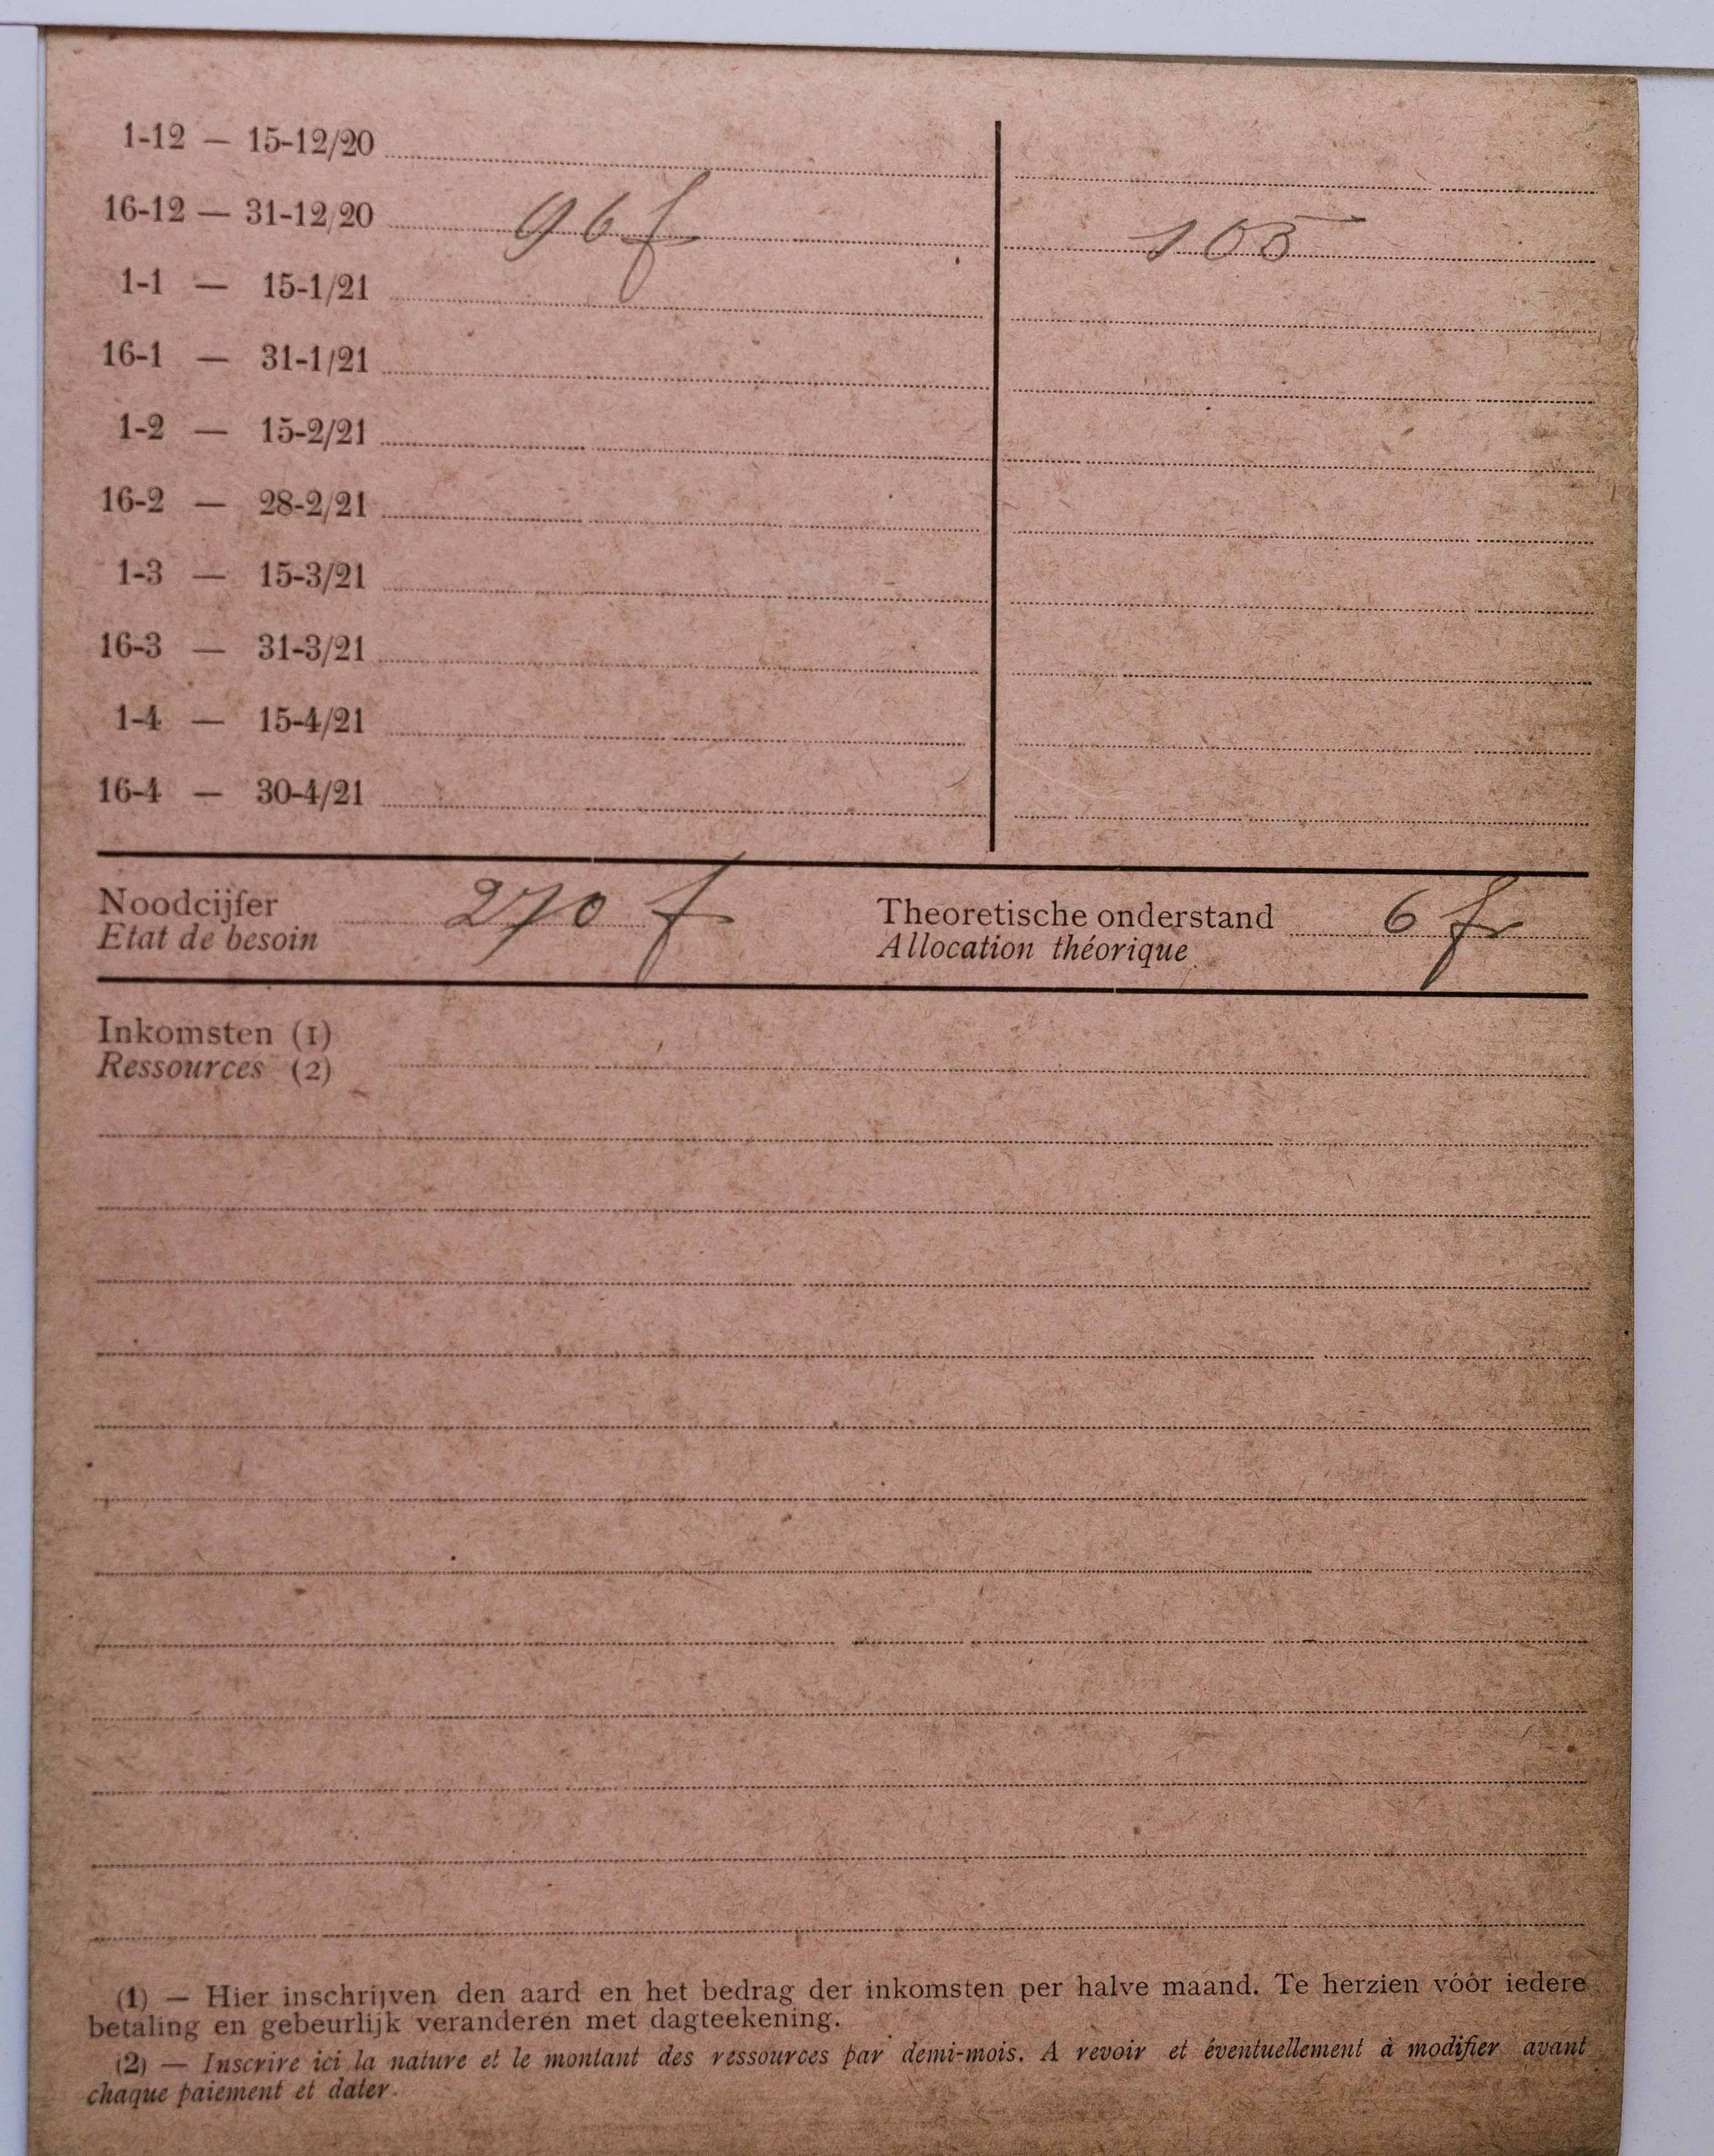 1-12 — 15-12/20
16-12 — 31-12/20 96 f 105
1-1 — 15-1/21
16-1 — 31-1/21
1-2 — 15-2/21
16-2 — 28-2/21
1-3 — 15-3/21
16-3 — 31-3/21
1-4 — 15-4/21
16-4 — 30-4/21
Noodcijfer 270 f Theoretische onderstand 6 fr
Etat de besoin Allocation théorique
Inkomsten (1)
Ressources (2)
(1) — Hier inschrijven den aard en het bedrag der inkomsten per halve maand. Te herzien vóór iedere
betaling en gebeurlijk veranderen met dagteekening.
(2) — Inscrire ici la nature et le montant des ressources par demi-mois. A revoir et éventuellement à modifier avant
chaque paiement et dater.